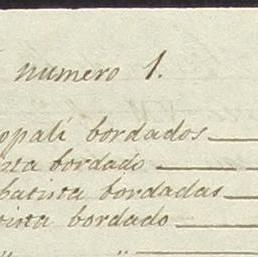 numero 1.
opali bordados
sta bordado
batista bordadas
tista bordado
" "